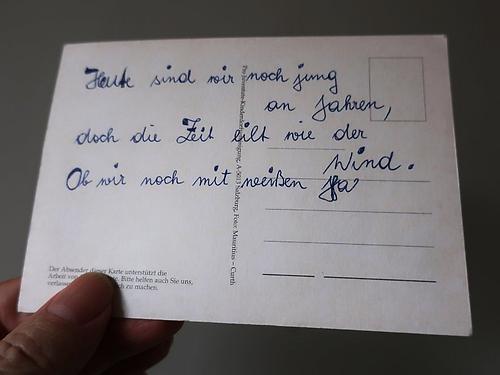 Heute sind wir noch jung
an Jahren,
doch die Zeit eilt wie der
Wind.
Ob wir noch mit weißen
Der Absender dieser Karte unterstützt die
Arbeit von Bitte helfen auch Sie uns,
zu machen.
Pro Juventute-Kinderdorf A-5013 Salzburg, Foto: Mauritius – Curth